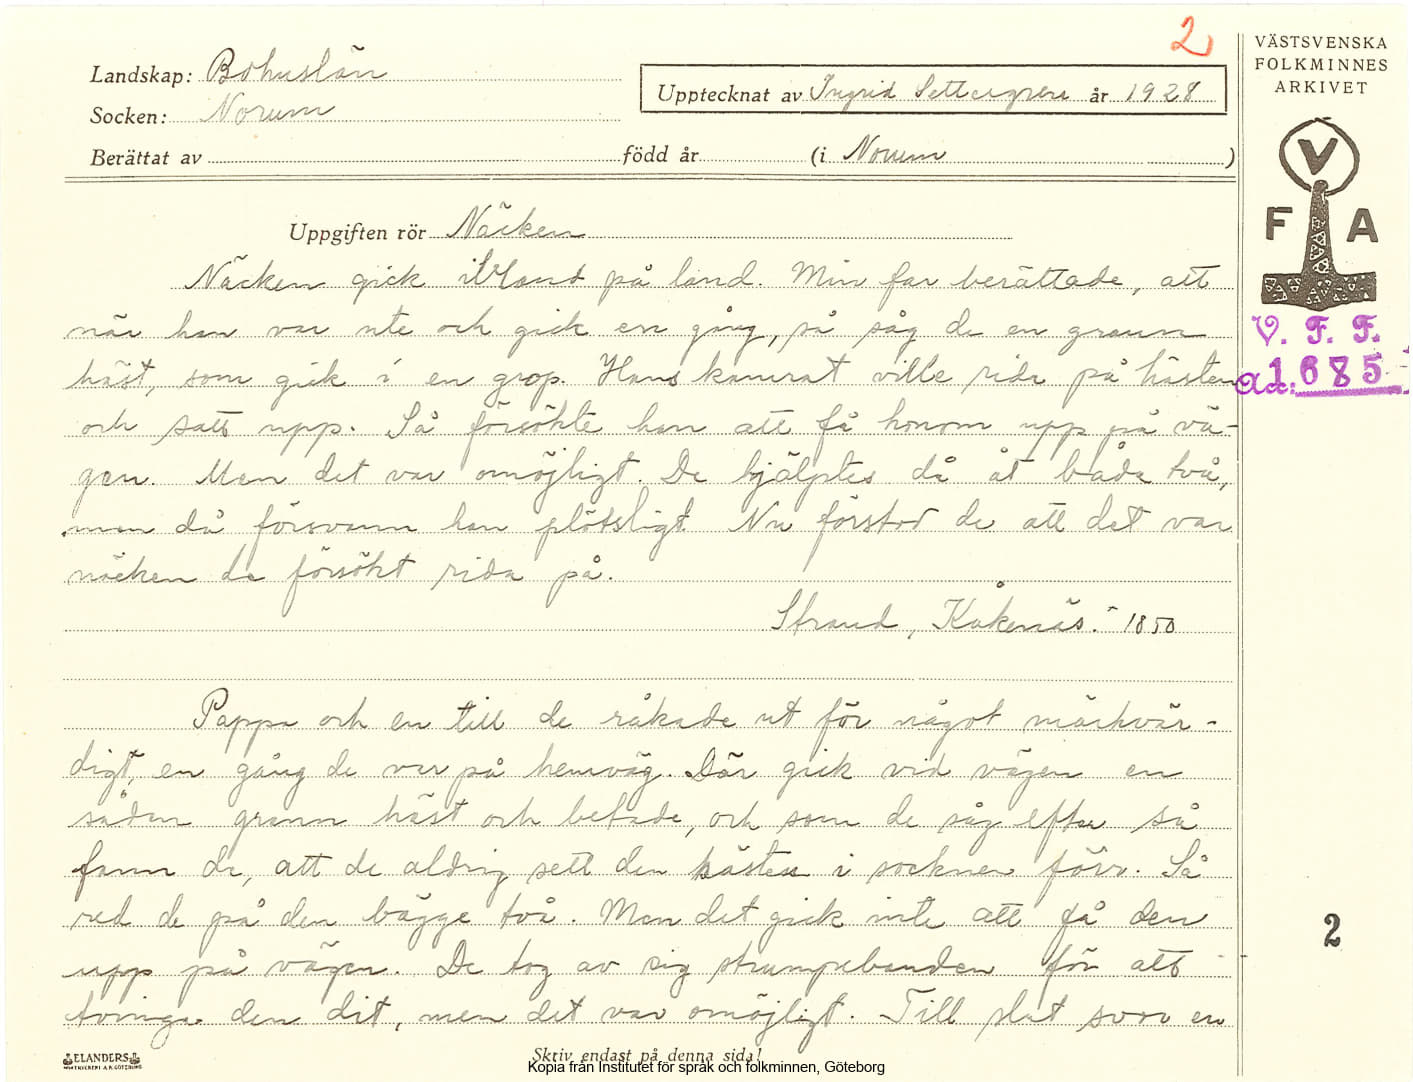 2
Landskap: Bohuslän
Socken: Norum
Upptecknat av Ingrid Settergren år 1928
Berättat av född år (i Norum )
VÄSTSVENSKA
FOLKMINNES
ARKIVET
V
F A
V. F. F.
Acc: 1685
Uppgiften rör Näcken
Näcken gick ibland på land. Min far berättade, att
när han var ute och gick en gång, så såg de en grann
häst, som gick i en grop. Hans kamrat ville rida på hästen
och satt upp. Så försökte han att få honom upp på vä-
gen. Men det var omöjligt. De hjälptes då åt båda två,
men då försvann han plötsligt. Nu förstod de att det var
näcken de försökt rida på.
Strand, Kåkenäs. 1850
Pappa och en till de råkade ut för något märkvär-
digt, en gång de var på hemväg. Där gick vid vägen en
sådan grann häst och betade, och som de såg efter så
fann de, att de aldrig sett den hästen i socknen förr. Så
red de på den bägge två. Men det gick inte att få den
upp på vägen. De tog av sig strumpebanden för att
tvinga den dit, men det var omöjligt. Till slut svor en
2
ELANDERS
Skriv endast på denna sida!
Kopia från Institutet för språk och folkminnen, Göteborg